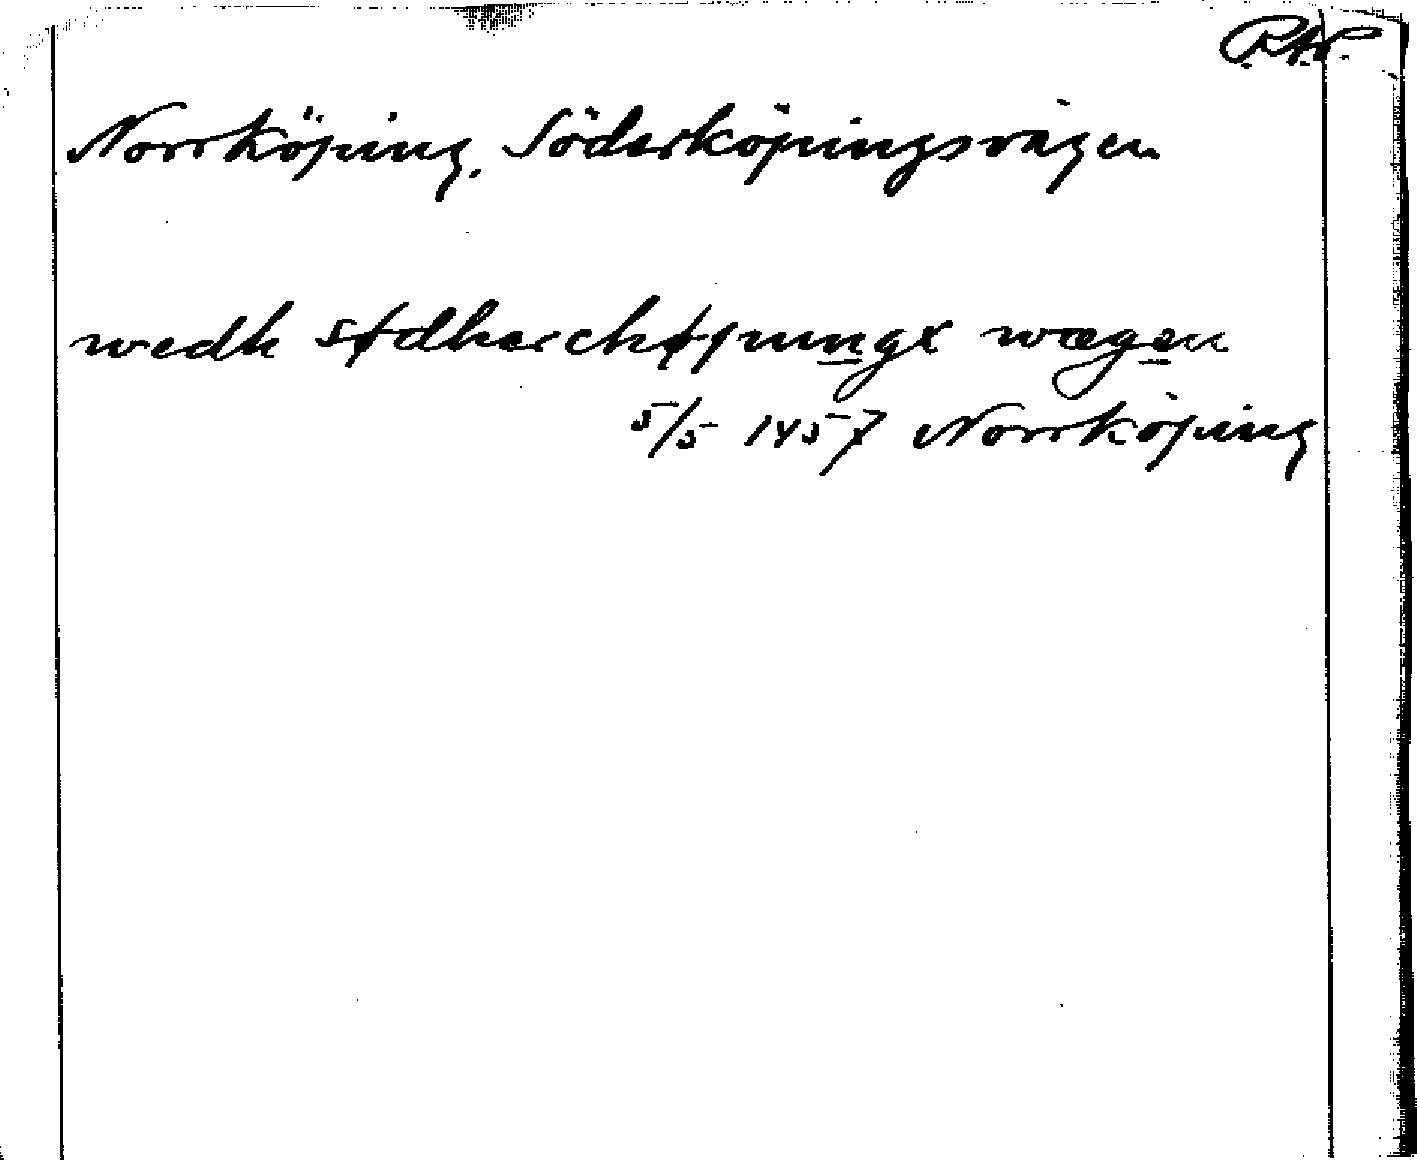 R.A.P.
Norrköping. Söderköpingsvägen
wedh sødherchøpungx wægen
5/5 1457 Norrköping